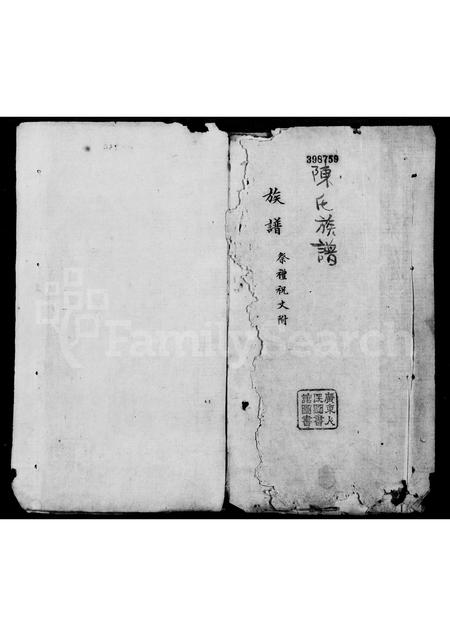 398759
陳氏族譜
族譜
祭禮祝文附
廣東人
民圖書
館圖書
FamilySearch